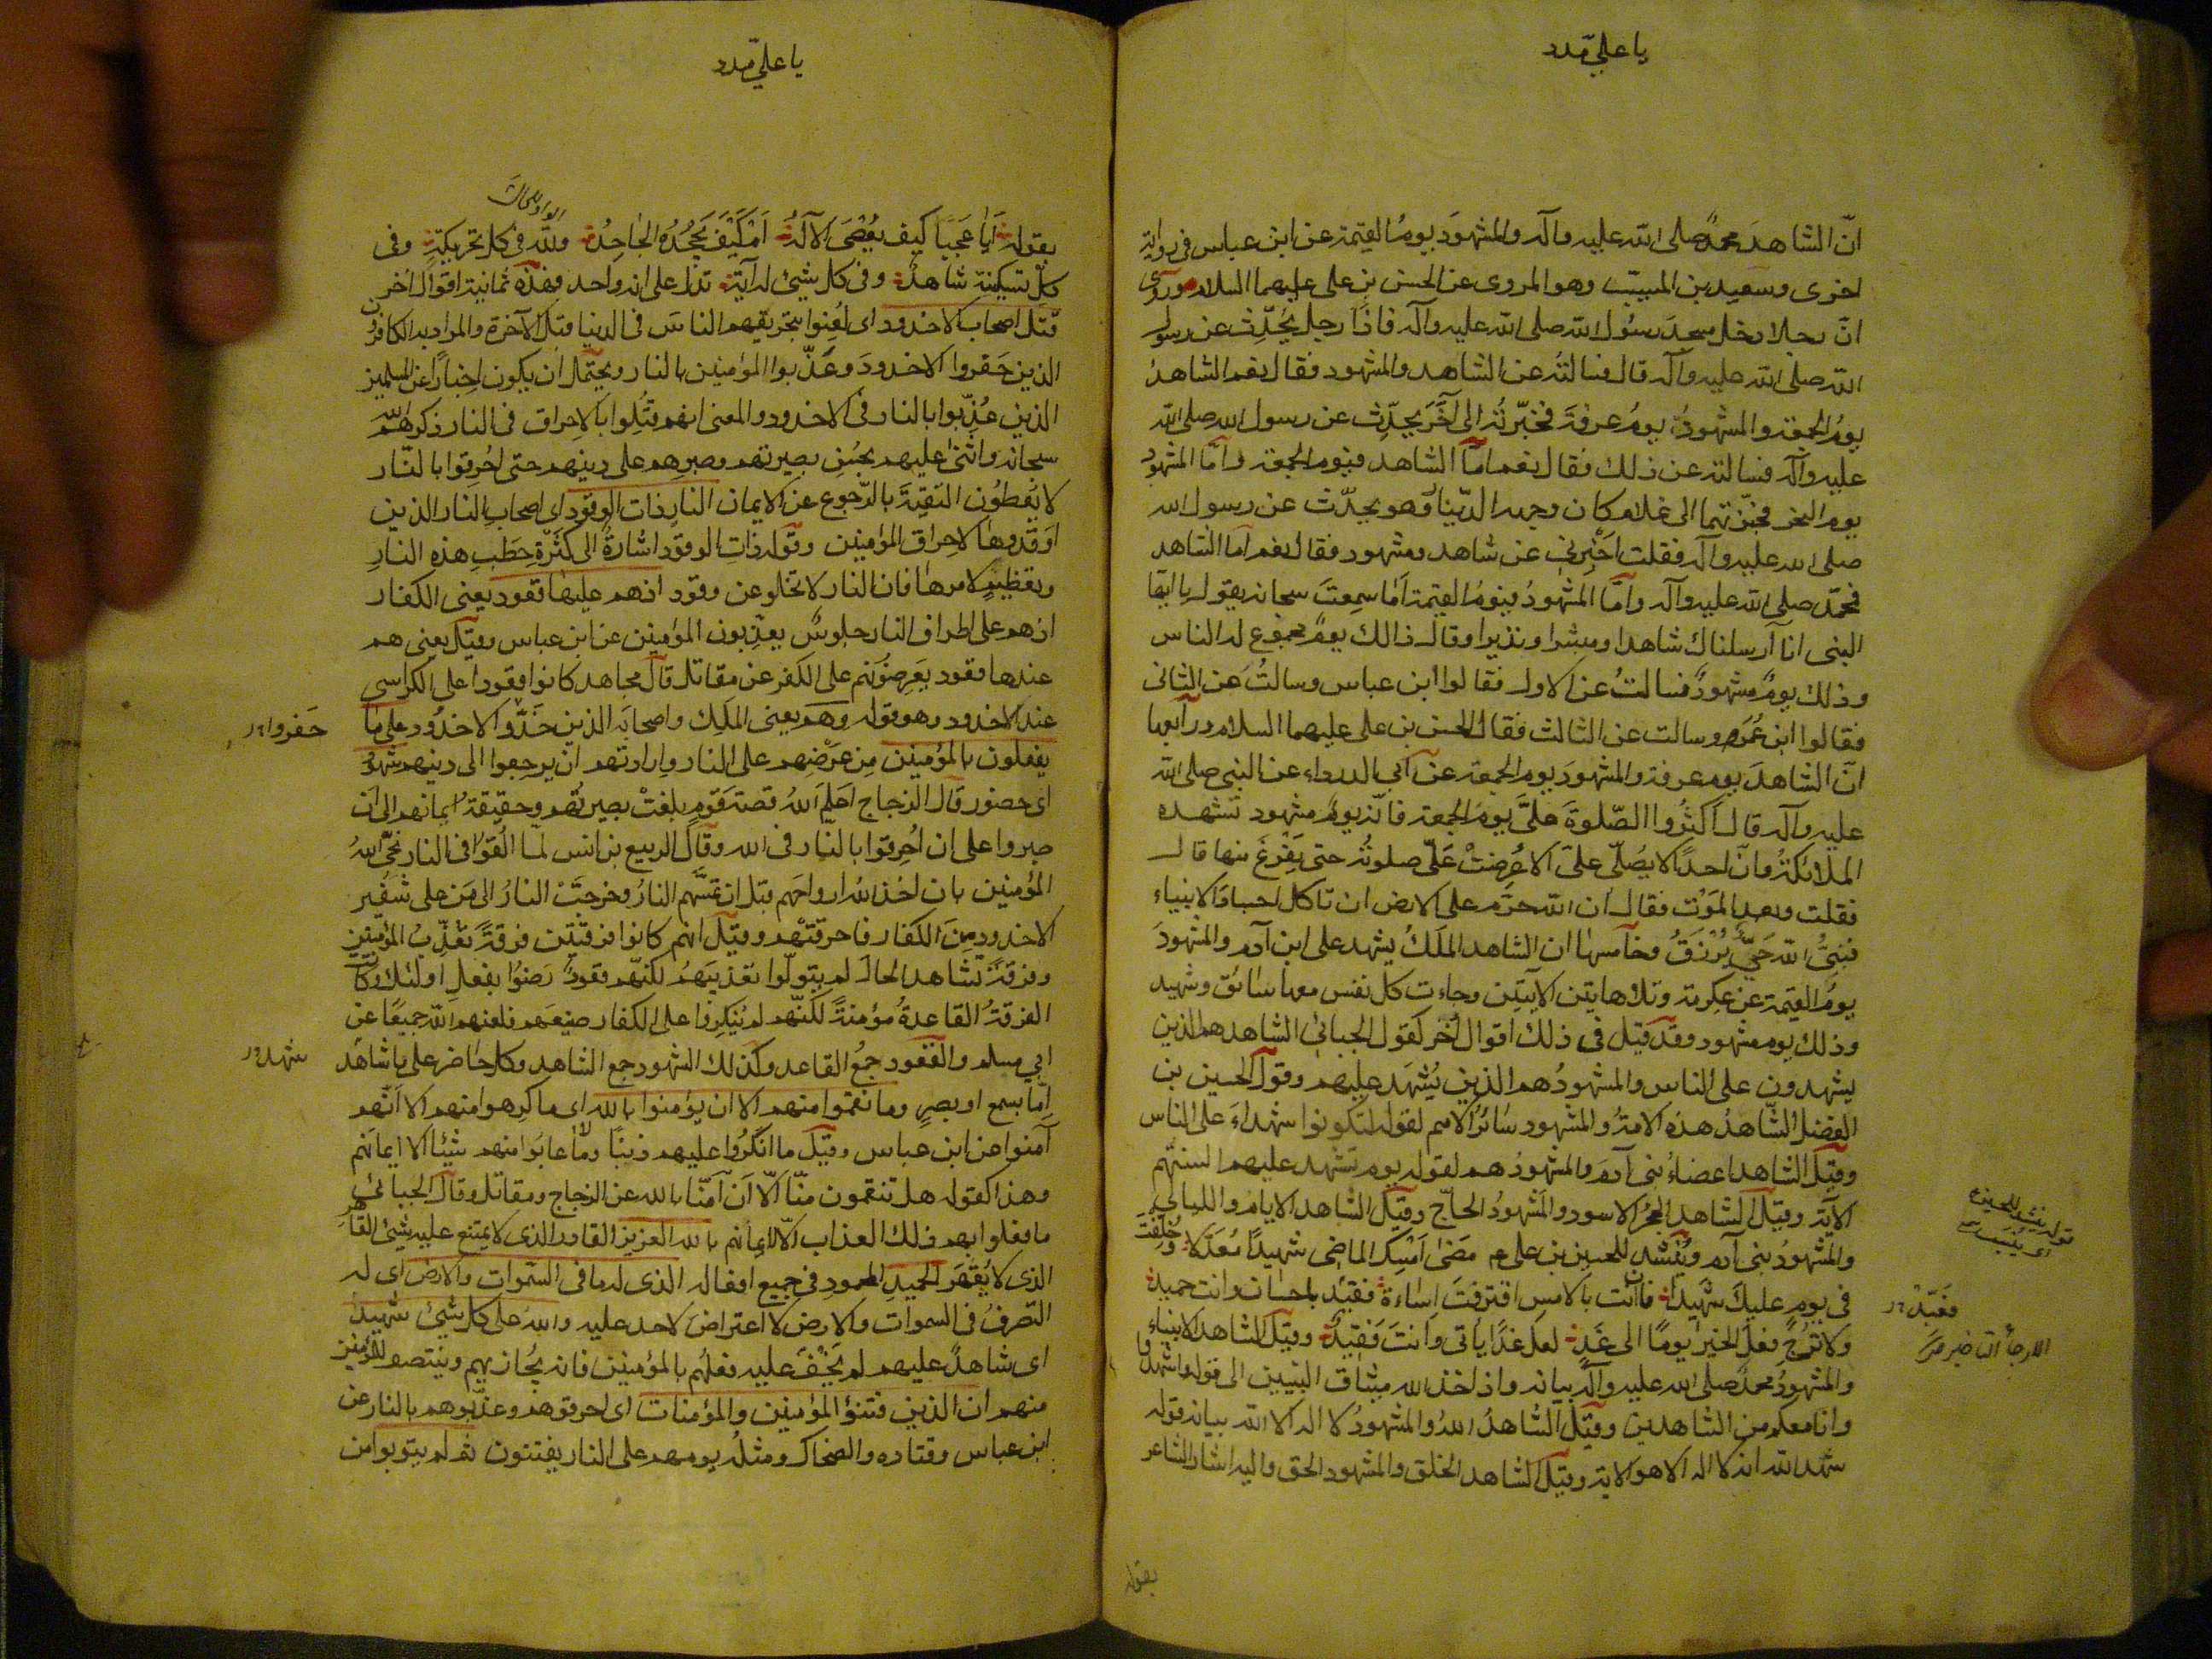 يا علي مدد
انّ الشاهد محمد صلى الله عليه وآله والمشهود يوم القيمة عن ابن عباس في رواية
اخرى وسعيد بن المسيب وهو المروى عن الحسن بن على عليهما السلام وروى
انّ رجلا دخل مسجد رسول الله صلى الله عليه وآله فاذا رجل يحدّث عن رسول
الله صلى الله عليه وآله قال فسالته عن الشاهد والمشهود فقال نعم الشاهد
يوم الجمعة والمشهود يوم عرفة فخبّرته الى آخر يحدّث عن رسول الله صلى الله
عليه وآله فسالته عن ذلك فقال نعم امّا الشاهد فيوم الجمعة وامّا المشهود
يوم النحر فجزتهما الى غلام كان وجهه الدّينار وهو يحدّث عن رسول الله
صلى الله عليه وآله فقلت اخبرنى عن شاهد ومشهود فقال نعم اما الشاهد
فمحمّد صلى الله عليه وآله وامّا المشهود فيوم القيمة اما سمعت سبحانه يقول يا ايها
النبى انا ارسلناك شاهدا ومبشرا ونذيرا وقال ذالك يوم مجموع له الناس
وذلك يوم مشهود فسالت عن الاول فقالوا ابن عباس وسالت عن الثانى
فقالوا ابن عمر وسالت عن الثالث فقال الحسن بن على عليهما السلام ورابعها
انّ الشاهد يوم عرفة والمشهود يوم الجمعة عن ابى الدرداء عن النبى صلى الله
عليه وآله قال اكثروا الصّلوة علىّ يوم الجمعة فانّه يوم مشهود تشهده
الملائكة وانّ احدًا لا يصلّى علىّ الا عرضت علىّ صلوته حتى يفرغ منها قال
فقلت وبعد الموت فقال ان الله حرّم على الارض ان تاكل اجساد الانبياء
فنبىّ الله حىّ يرزق وخامسها ان الشاهد الملك يشهد على ابن آدم والمشهود
يوم القيمة عن عكرمة وتلا هاتين الآيتين وجاءت كل نفس معها سائق وشهيد
وذلك يوم مشهود وقد قيل في ذلك اقوال اخر كقول الجبائى الشاهد هم الذين
يشهدون على الناس والمشهود هم الذين يشهد عليهم وقول الحسين بن
الفضل الشاهد هذه الامة والمشهود سائر الامم لقوله لتكونوا شهداء على الناس
وقيل الشاهد اعضاء بنى آدم والمشهود هم لقوله يوم تشهد عليهم السنتهم
الآية وقيل الشاهد الحجر الاسود والمشهود الحاجّ وقيل الشاهد الايام والليالى
والمشهود بنى آدم وينشد للحسين بن على ع مضى امسك الماضى شهيدًا معدّلا وخلّفت
في يوم عليك شهيد فان انت بالامس اقترفت اساءة فقيّد باحسان وانت حميد
ولا ترج فعل الخير يومًا الى غد لعل غدًا ياتى وانت فقيد وقيل الشاهد الانبياء
والمشهود محمد صلى الله عليه وآله بيانه واذ اخذ الله ميثاق النبيين الى قوله فاشهدوا
وانا معكم من الشاهدين وقيل الشاهد الله والمشهود لا اله الا الله بيانه قوله
شهد الله انه لا اله الا هو الاية وقيل الشاهد الخلق والمشهود الحق واليه اشار الشاعر
بقوله
قوله ينشد للحسين ع
فقيّد
يا علي مدد
بقوله ايا عجبًا كيف يعصى الآله ام كيف يجحده الجاحد ولله في كل تحريكة وفى
كل تسكينة شاهد وفى كل شيئ له آية تدل على انه واحد فهذه ثمانية اقوال اخر
قتل اصحاب الاخدود اى لعنوا بتحريقهم الناس في الدنيا قبل الآخرة والمراد به الكافرون
الذين حفروا الاخدود وعذّبوا المؤمنين بالنار ويحتمل ان يكون اخبارًا عن المسلمين
الذين عذّبوا بالنار في الاخدود والمعنى انهم قتلوا بالاحراق في النار ذكرهم الله
سبحانه واثنى عليهم بحسن بصيرتهم وصبرهم على دينهم حتى احرقوا بالنّار
لا يعطون التقيّة بالرّجوع عن الايمان النار ذات الوقود اى اصحاب النار الذين
اوقدوها لاحراق المؤمنين وقوله ذات الوقود اشارة الى كثرة حطب هذه النار
وتعظيم لامرها فان النار لا تخلو عن وقود اذ هم عليها قعود يعنى الكفار
اذ هم على اطراف النار جلوس يعذّبون المؤمنين عن ابن عباس وقيل يعنى هم
عندها قعود يعرضونهم على الكفر عن مقاتل قال مجاهد كانوا قعودا على الكراسى
عند الاخدود وهو قوله وهم يعنى الملك واصحابه الذين خدّوا الاخدود على ما
يفعلون بالمؤمنين من عرضهم على النار وارادتهم ان يرجعوا الى دينهم شهود
اى حضور قال الزجاج اعلم الله قصة قوم بلغت بصيرتهم وحقيقة ايمانهم الى ان
صبروا على ان احرقوا بالنّار في الله وقال الربيع بن انس لمّا القوا في النار نجّى الله
المؤمنين بان اخذ الله ارواحهم قبل ان تمسّهم النار وخرجت النار الى من على شفير
الاخدود من الكفار فاحرقتهم وقيل انهم كانوا فرقتين فرقة تعذّب المؤمنين
وفرقة تشاهد الحال لم يتولّوا تعذيبهم لكنّهم قعود رضوا بفعل اولئك وكانت
الفرقة القاعدة مؤمنة لكنّهم لم ينكروا على الكفار صنيعهم فلعنهم الله جميعًا عن
ابي مسلم والقعود جمع القاعد وكذلك الشهود جمع الشاهد وكل حاضر على ما شاهد
امّا بسمع او بصر وما نقموا منهم الا ان يؤمنوا بالله اى ما كرهوا منهم الا انّهم
آمنوا عن ابن عباس وقيل ما انكروا عليهم ذنبًا وما عابوا منهم شيئًا الا ايمانهم
وهذا كقوله هل تنقمون منّا الّا ان آمنّا بالله عن الزجاج ومقاتل وقال الجبائى
ما فعلوا بهم ذلك العذاب الّا لايمانهم بالله العزيز القادر الذى لا يمتنع عليه شيئ القاهر
الذى لا يقهر الحميد المحمود في جميع افعاله الذى له ما في السموات والارض اى له
التصرف في السموات والارض لا اعتراض لاحد عليه والله على كل شيئ شهيد
اى شاهد عليهم لم يخف عليه فعلهم بالمؤمنين فانه يجازيهم وينتصف للمؤمنين
منهم ان الذين فتنوا المؤمنين والمؤمنات اى احرقوهم وعذّبوهم بالنار عن
ابن عباس وقتاده والضحاك ومثله يوم هم على النار يفتنون ثم لم يتوبوا من
حفروا
شهد